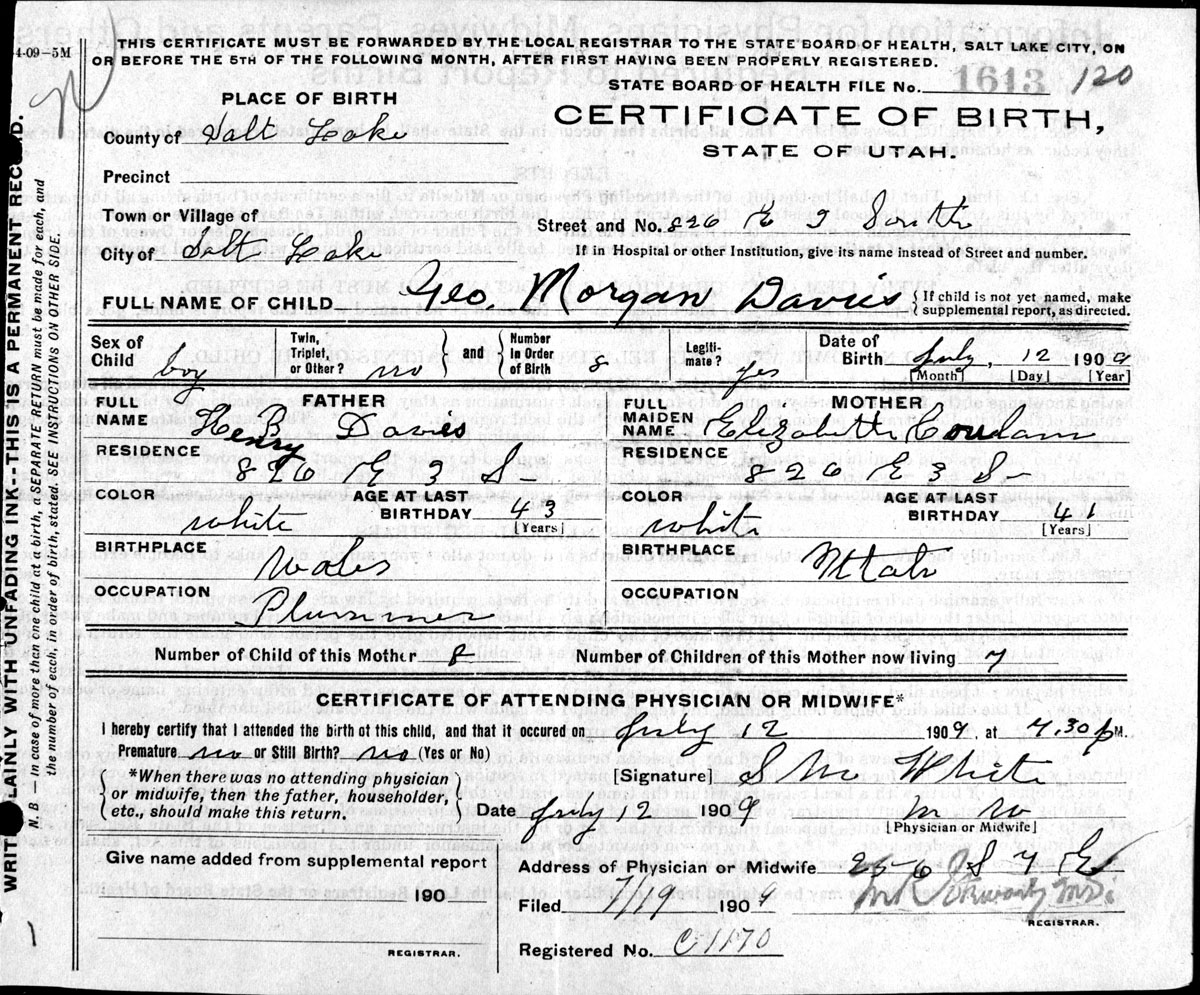 4-09-5M
THIS CERTIFICATE MUST BE FORWARDED BY THE LOCAL REGISTRAR TO THE STATE BOARD OF HEALTH, SALT LAKE CITY, ON
OR BEFORE THE 5TH OF THE FOLLOWING MONTH, AFTER FIRST HAVING BEEN PROPERLY REGISTERED.
STATE BOARD OF HEALTH FILE No. 1613 120
PLACE OF BIRTH
CERTIFICATE OF BIRTH,
STATE OF UTAH.
County of Salt Lake
Precinct
Town or Village of
Street and No. 826 E 3 South
City of Salt Lake
If in Hospital or other Institution, give its name instead of Street and number.
FULL NAME OF CHILD Geo Morgan Davies {If child is not yet named, make
supplemental report, as directed.
Sex of Child boy
Twin, Triplet, or Other? no
and
Number in Order of Birth 8
Legiti-mate? yes
Date of Birth July, 12 1909
[Month] [Day] [Year]
FATHER
FULL NAME Henry B Davies
RESIDENCE
826 E 3 S
COLOR white
AGE AT LAST BIRTHDAY 43
[Years]
BIRTHPLACE
Wales
OCCUPATION
Plummer
MOTHER
FULL MAIDEN NAME Elizabeth
RESIDENCE
826 E 3 S
COLOR white
AGE AT LAST BIRTHDAY 41
[Years]
BIRTHPLACE
Utah
OCCUPATION
Number of Child of this Mother 8
Number of Children of this Mother now living 7
CERTIFICATE OF ATTENDING PHYSICIAN OR MIDWIFE*
I hereby certify that I attended the birth of this child, and that it occured on July 12 1909, at 7.30 pM.
Premature no or Still Birth? no (Yes or No)
*When there was no attending physician
or midwife, then the father, householder,
etc., should make this return.
[Signature] White
Date July 12 1909
[Physician or Midwife]
Give name added from supplemental report
190
REGISTRAR.
Address of Physician or Midwife 256 S 7 E
Filed 7/19 1909
REGISTRAR.
Registered No. C1170
WRITE PLAINLY WITH UNFADING INK--THIS IS A PERMANENT RECORD.
N. B. — In case of more then one child at a birth, a SEPARATE RETURN must be made for each, and
the number of each, in order of birth, stated. SEE INSTRUCTIONS ON OTHER SIDE.